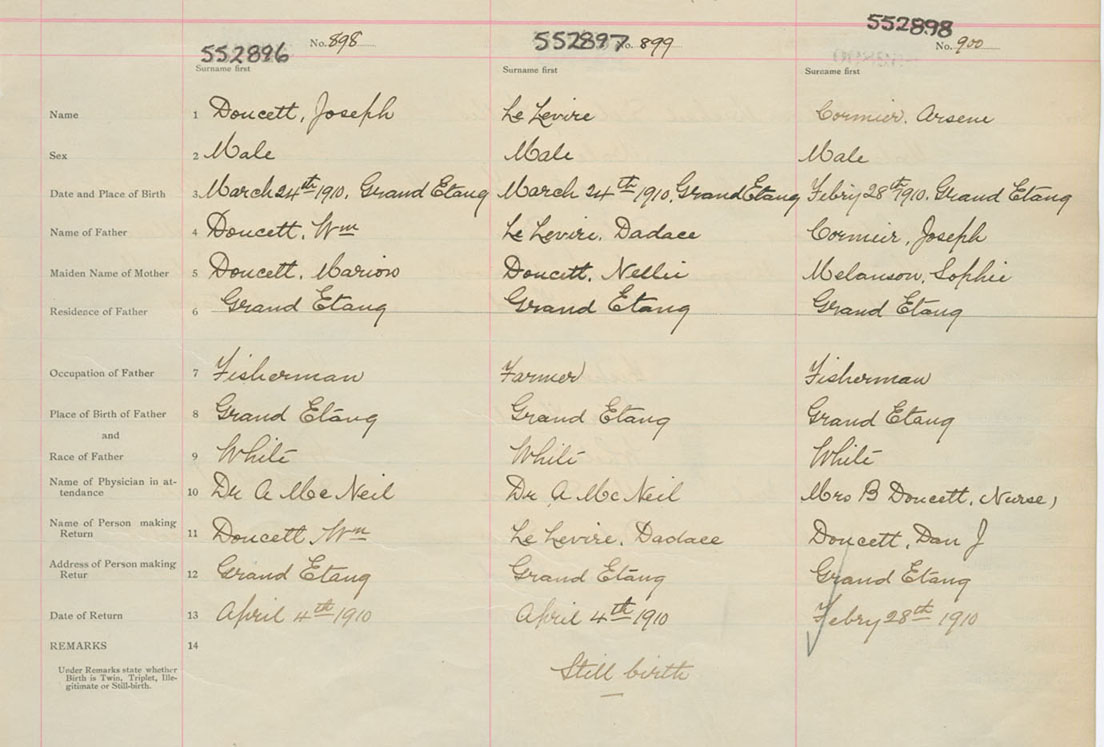 552896 No. 898 552897 No. 899 552898 No. 900
Surname first Surname first Surname first
Name 1 Doucett, Joseph Le Levire Cormier, Arsene
Sex 2 Male Male Male
Date and Place of Birth 3 March 24th 1910, Grand Etang March 24th 1910, Grand Etang Febry 28th 1910, Grand Etang
Name of Father 4 Doucett, Wm Le Levire, Dadace Cormier, Joseph
Maiden Name of Mother 5 Doucett, Marion Doucett, Nellie Melanson, Sophie
Residence of Father 6 Grand Etang Grand Etang Grand Etang
Occupation of Father 7 Fisherman Farmer Fisherman
Place of Birth of Father 8 Grand Etang Grand Etang Grand Etang
and
Race of Father 9 White White White
Name of Physician in at-
tendance 10 Dr A McNeil Dr A McNeil Mrs B Doucett, Nurse,
Name of Person making
Return 11 Doucett, Wm Le Levire, Dadace Doucett, Dan J
Address of Person making
Retur 12 Grand Etang Grand Etang Grand Etang
Date of Return 13 April 4th 1910 April 4th 1910 Febry 28th 1910
REMARKS 14
Under Remarks state whether
Birth is Twin, Triplet, Ille-
gitimate or Still-birth.
Still birth